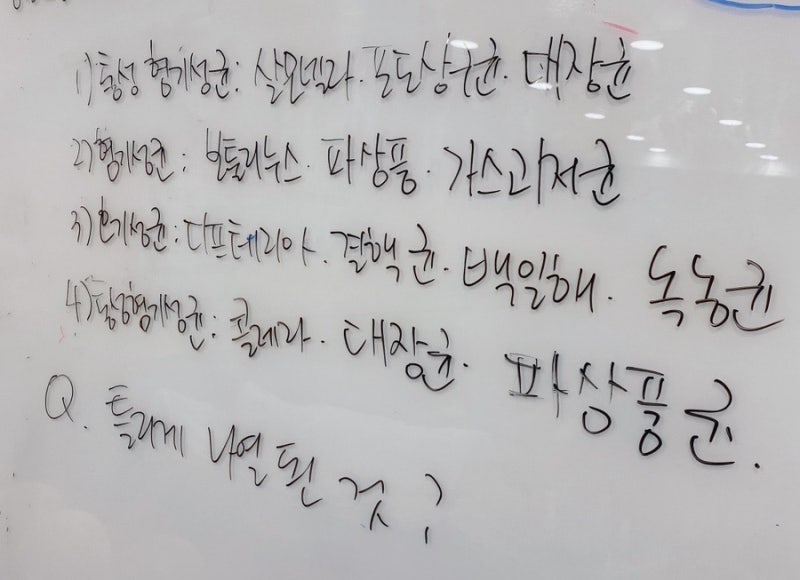 1) 통성 혐기성균: 살모넬라. 포도상구균. 대장균
2) 혐기성균: 보툴리누스. 파상풍. 가스괴저균
3) 호기성균: 디프테리아. 결핵균. 백일해. 녹농균
4) 통성혐기성균: 콜레라. 대장균. 파상풍균.
Q. 틀리게 나열 된 것?